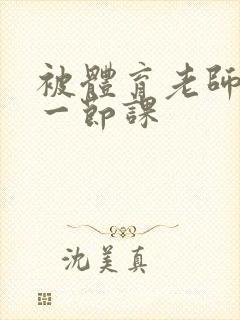 被體育老師
一節課
沈美真